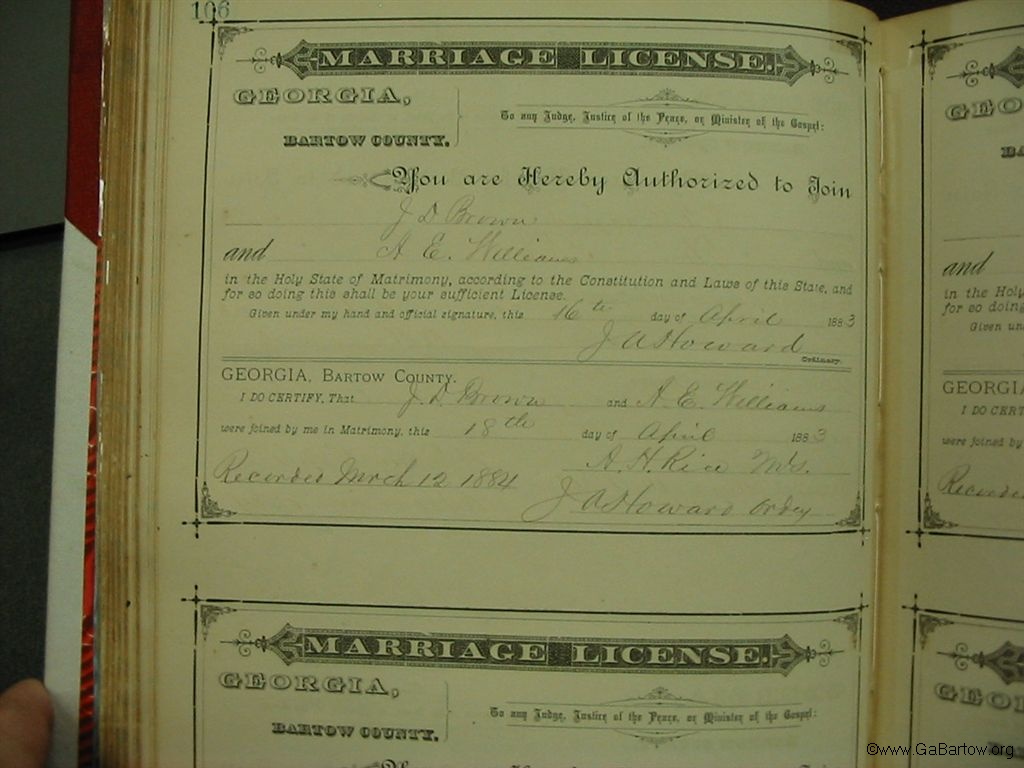 106
MARRIAGE LICENSE.
GEORGIA,
BARTOW COUNTY.
To any Judge, Justice of the Peace, or Minister of the Gospel:
You are Hereby Authorized to Join
J D Brown
and A E. Williams
in the Holy State of Matrimony, according to the Constitution and Laws of this State, and
for so doing this shall be your sufficient License.
Given under my hand and official signature, this 16th day of April 1883
J A Howard
Ordinary.
GEORGIA, BARTOW COUNTY.
I DO CERTIFY, That J. D. Brown and A. E. Williams
were joined by me in Matrimony, this 18th day of April 1883
A. H. Rice
Recorded March 12 1884
J A Howard Ordy
MARRIAGE LICENSE.
GEORGIA,
BARTOW COUNTY.
To any Judge, Justice of the Peace, or Minister of the Gospel:
GEO
BA
and
in the Holy
for so doing
Given un
GEORGIA
I DO CERT
were joined by
Recorde
GEO
©www.GaBartow.org